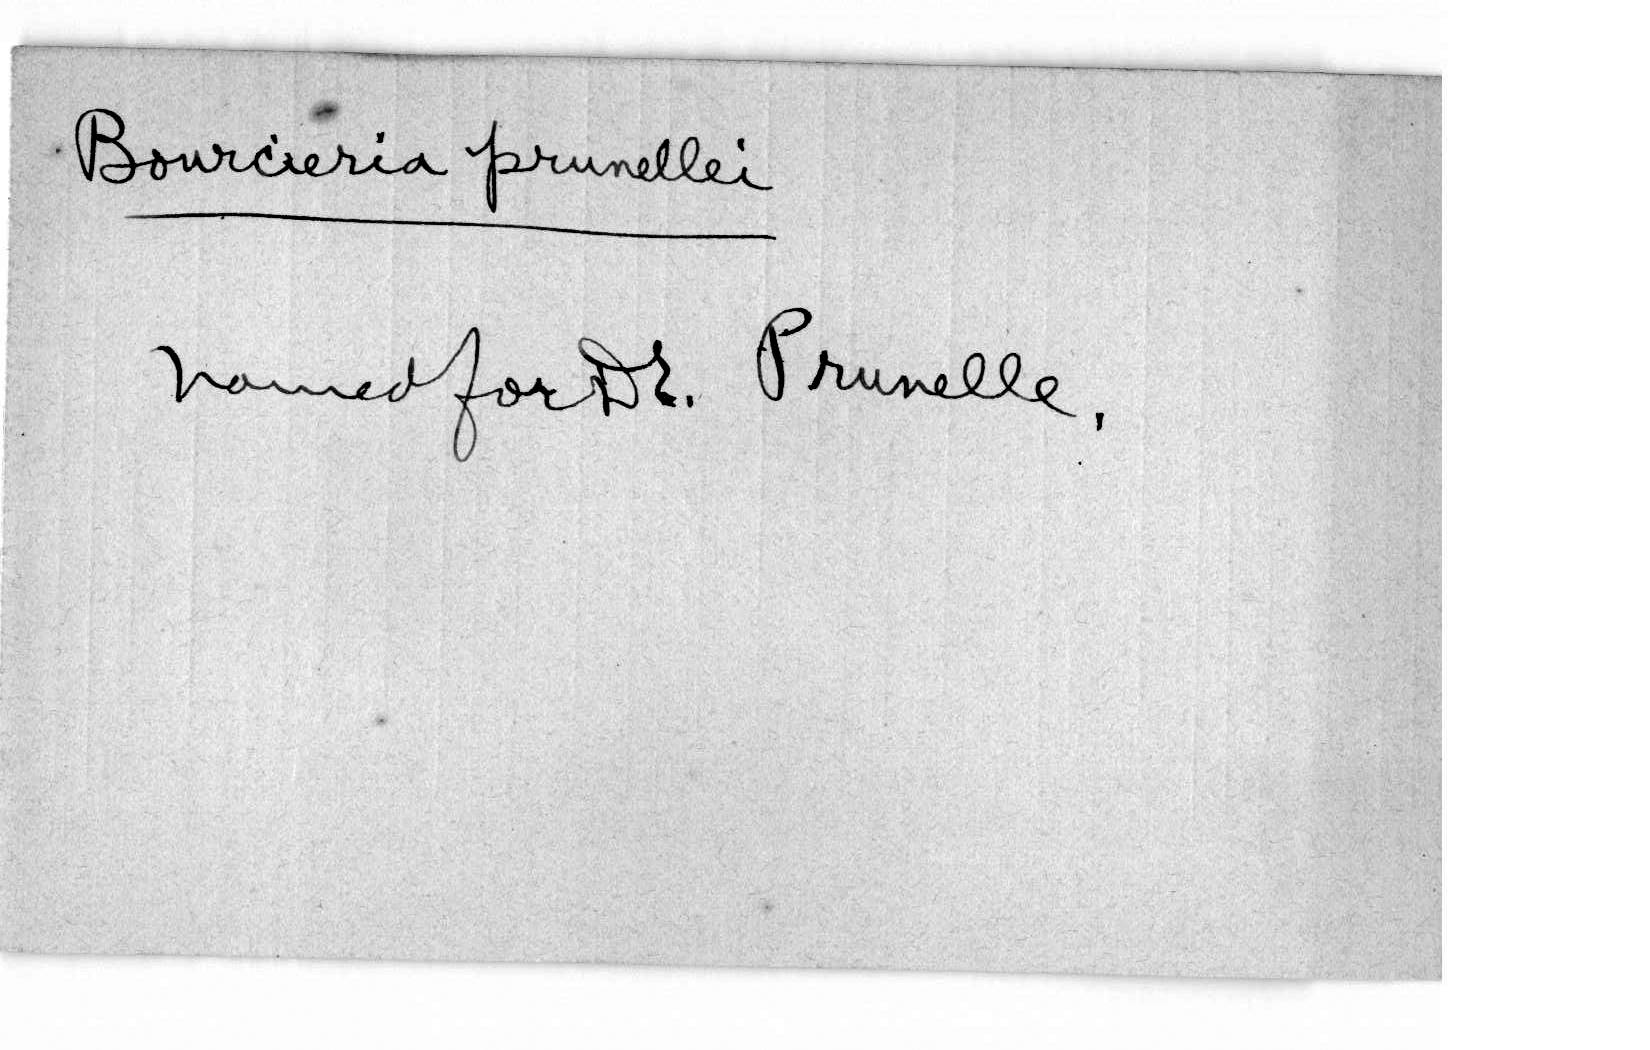 Bourcieria prunellei
named for Dr. Prunelle,